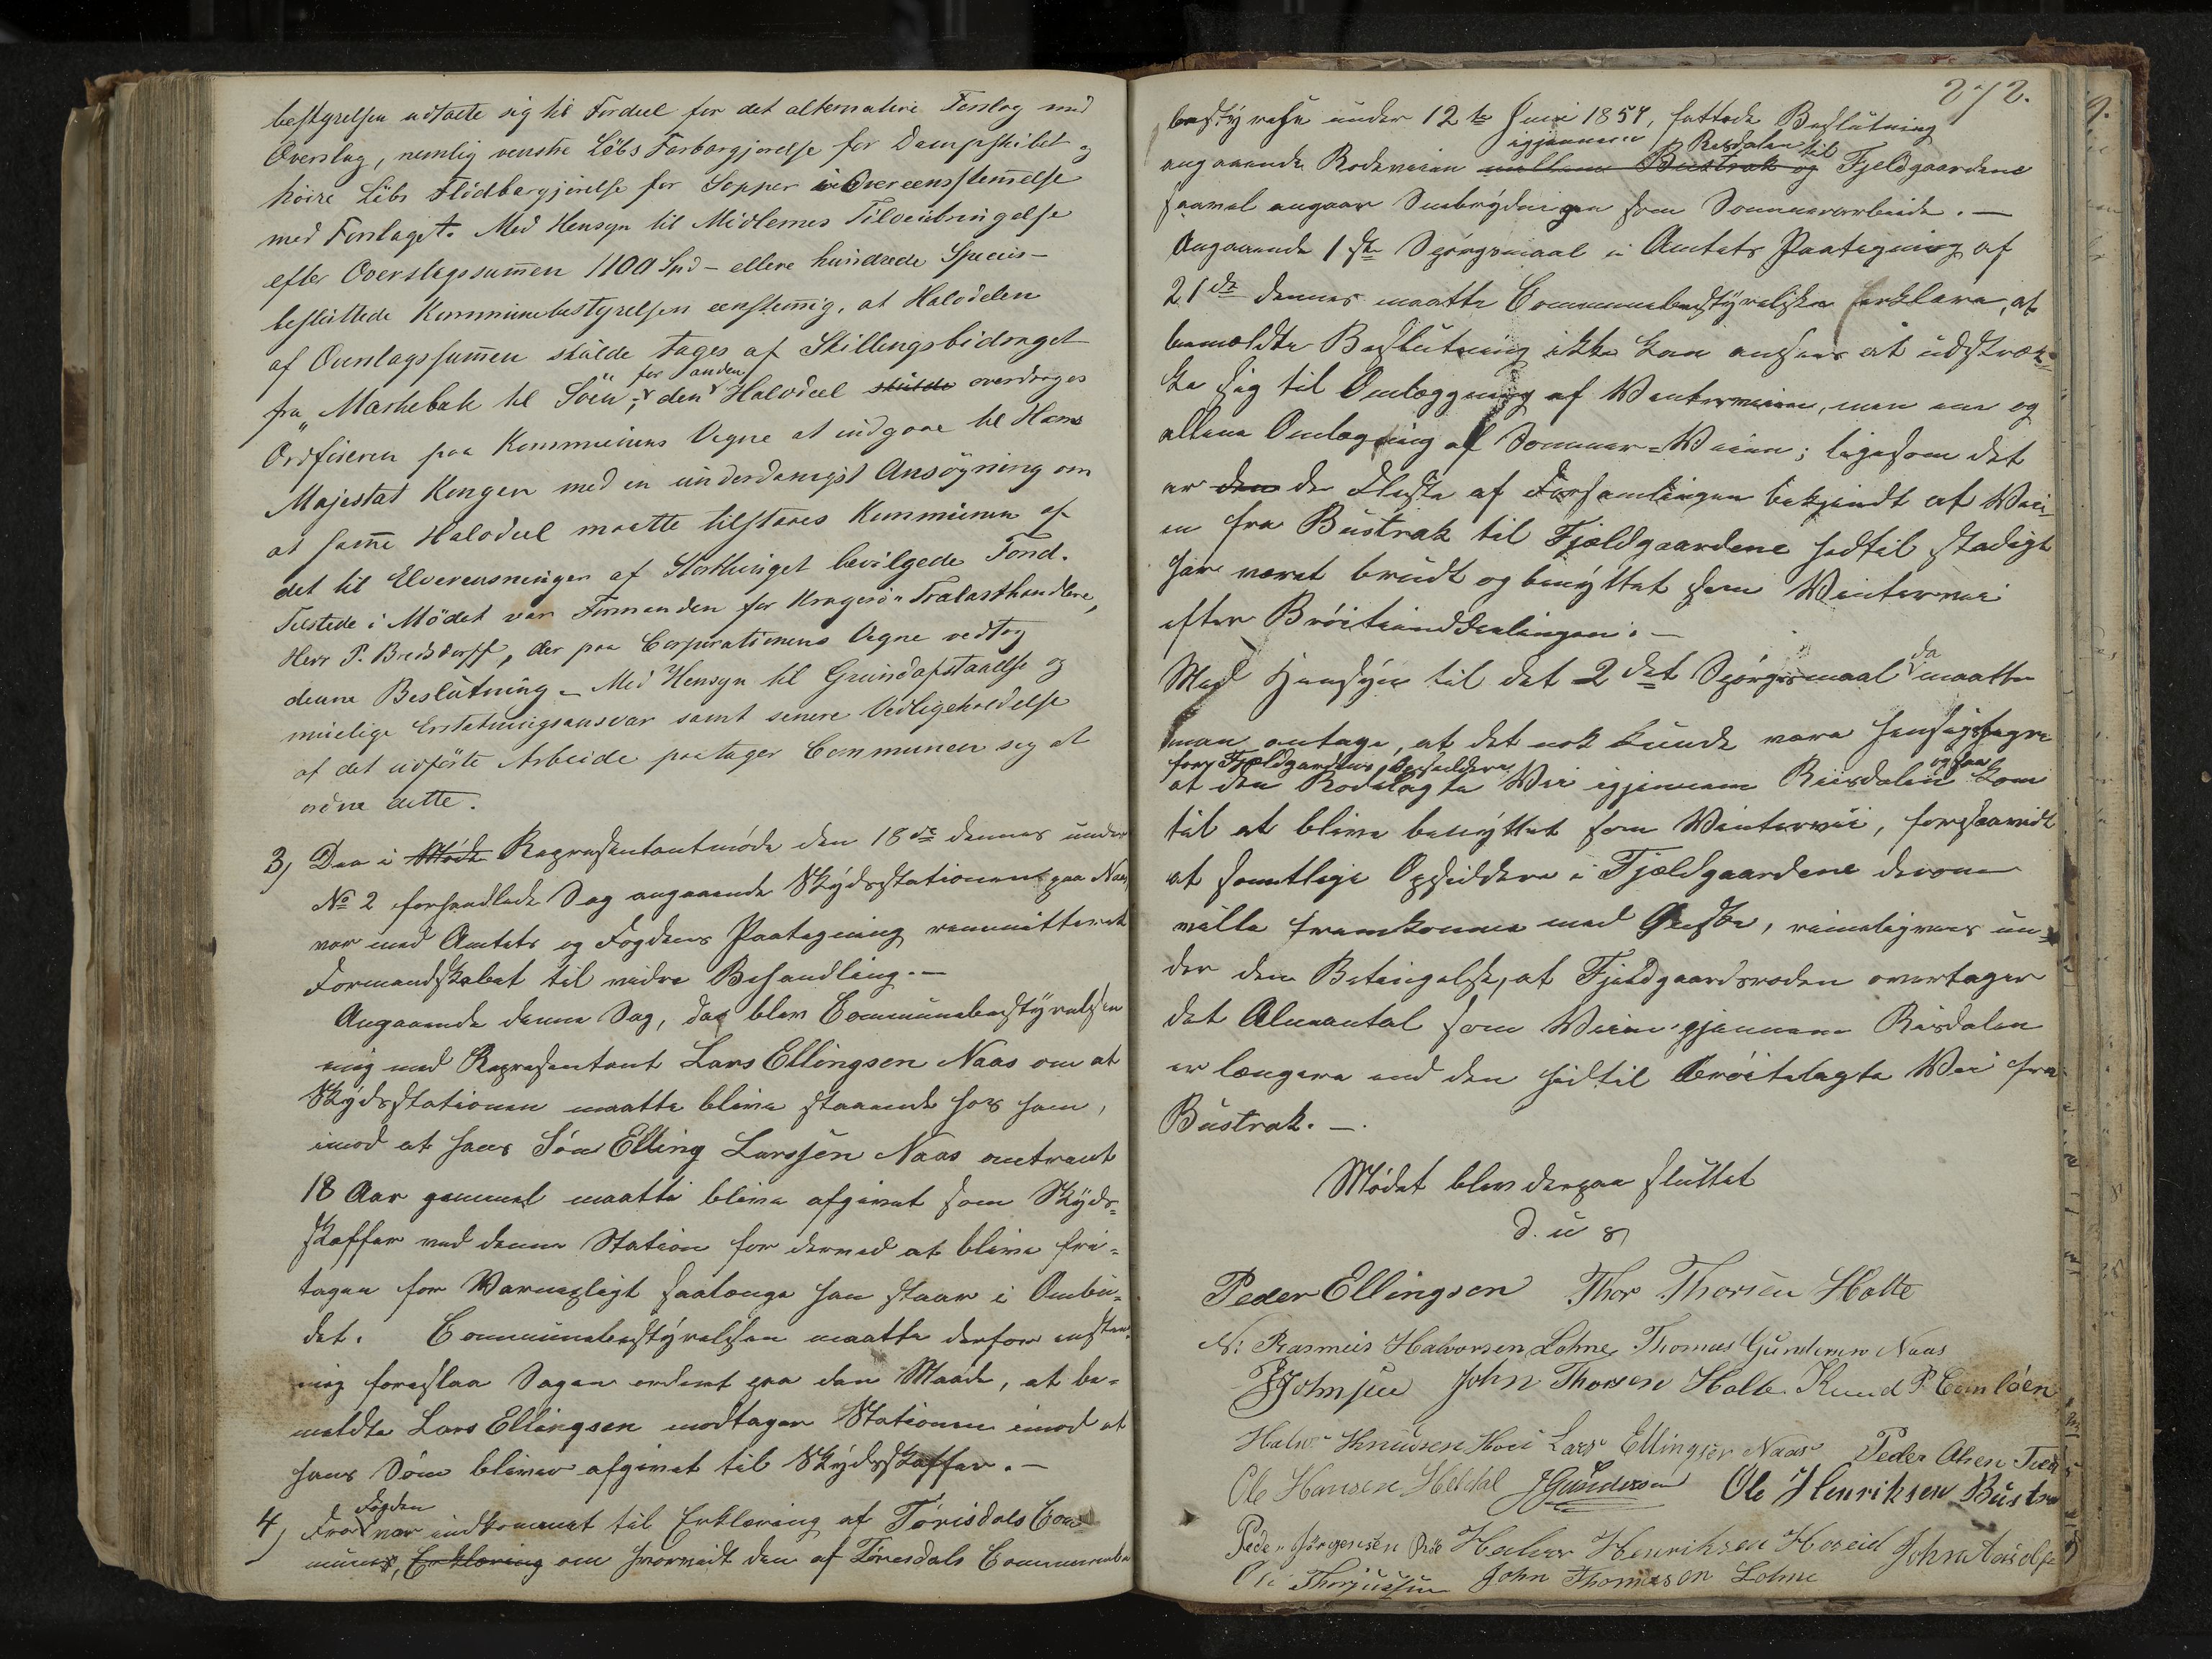 bestyrelsen udtalte sig til Fordeel for det alternative Forslag med
Overslag, nemlig venstre Løbs Farbargjørelse for Dampskibet og
høire Løbs Flødbargjørelse for Sopper i Overeensstemmelse
med Forslaget. Med Hensyn til Midlernes Tilveiebringelse
efter Overslagssummen 1100 Spd – elleve hundrede Specie –
besluttede Kommunebestyrelsen eenstemmig, at Halvdelen
af Overslagssummen skulde tages af Skillingsbidraget
for anden
fra Mærkebæk til Søen; den Halvdeel skulde overdrages
Ordføreren paa Kommunens Vegne at indgaae til Hans
Majestæt Kongen med en underdanigst Ansøgning om
at samme Halvdeel maatte tilstaaes Kommunen af
det til Elverensningen af Storthinget bevilgede Fond.
Tilstede i Mødet var Formanden for Kragerø Trælasthandlere,
Herr P. Bredsdorff, der paa Corporationens Vegne vedtog
denne Beslutning – Med Hensyn til Grundafstaaelse og
muelige Erstatningsansvar samt senere Vedligeholdelse
af det udførte Arbeide paatager Communen sig at
ordne dette.
3) Den i Møde Repræsentantmøde den 18de dennes under
No 2 forhandlede Sag angaaende Skydsstationen paa Naas
var med Amtets og Fogdens Paategning remitteret
Formandskabet til videre Behandling. –
Angaaende denne Sag, da blev Communebestyrelsen
enig med Repræsentant Lars Ellingsen Naas om at
Skydsstationen maatte blive staaende hos ham,
imod at hans Søn Elling Larssen Naas omtrent
18 Aar gammel maatte blive afgivet som Skyds-
skaffer ved denne Station for derved at blive fri-
tagen for Værnepligt saalænge han staar i Ombu-
det. Communebestyrelsen maatte derfor enstem-
mig foreslaa Sagen ordnet paa den Maade, at be-
meldte Lars Ellingsen modtager Stationen imod at
hans Søn bliver afgivet til Skydsskaffer. –
Fogden
4) Fra var indkommet til Erklæring af Tørisdals Com
munes, Erklæring om hvorvidt den af Tørisdals Commune
272.
bestyrelse under 12te Juni 1857, fattede Beslutning
igjennem Risdalen til
angaaende Rodeveien mellem Bustrak og Fjeldgaardene
saavel angaar Snebrydningen som Sommerarbeide. –
Angaaende 1ste Spørgsmaal i Amtets Paategning af
21de dennes maatte Communebestyrelsen erklære, at
bemældte Beslutning ikke kan ansees at udstræk-
ke sig til Omlægning af Vinterveien, men ene og
allene Omlægning af Sommer-Veien; ligesom det
er den de Fleste af Forsamlingen bekjendt at Vei-
en fra Bustrak til Fjældgaardene hidtil stadigt
har været brudt og benyttet som Vintervei
efter Brøiteinddelingen. –
da
Med Hensyn til det 2det Spørgsmaal maatte
man antage, at det nok kunde være hensigtsfegre
for Fjældgaardenes Opsiddere ogsaa
at den Rodelagte Vei igjennem Riisdalen kom
til at blive benyttet som Vintervei, forsaavidt
at samtlige Opsiddere i Fjældgaardene derom
ville fremkomme med Ønske, rimeligviis un-
der den Betingelse, at Fjeldgaardsroden overtager
det Alneantal som Veien igjennem Risdalen
er længere end den hidtil brøitelagte Vei fra
Bustrak. –
Mødet blev derpaa sluttet
D. u s
Peder Ellingsen Thor Thorsen Holte
N: Rasmus Halvorsen Lohne Thomas Gundersen Naas
Johnsen John Thorsen Holte Knud P.
Halvor Knudsen Lars Ellingsen Naas Peder Olsen
Ole Hansen Heldal J Gundersen Ole Henriksen Bustra
Peder Jørgensen Halvor Henriksen Hoseid John
Ole John Thomesen Lohne